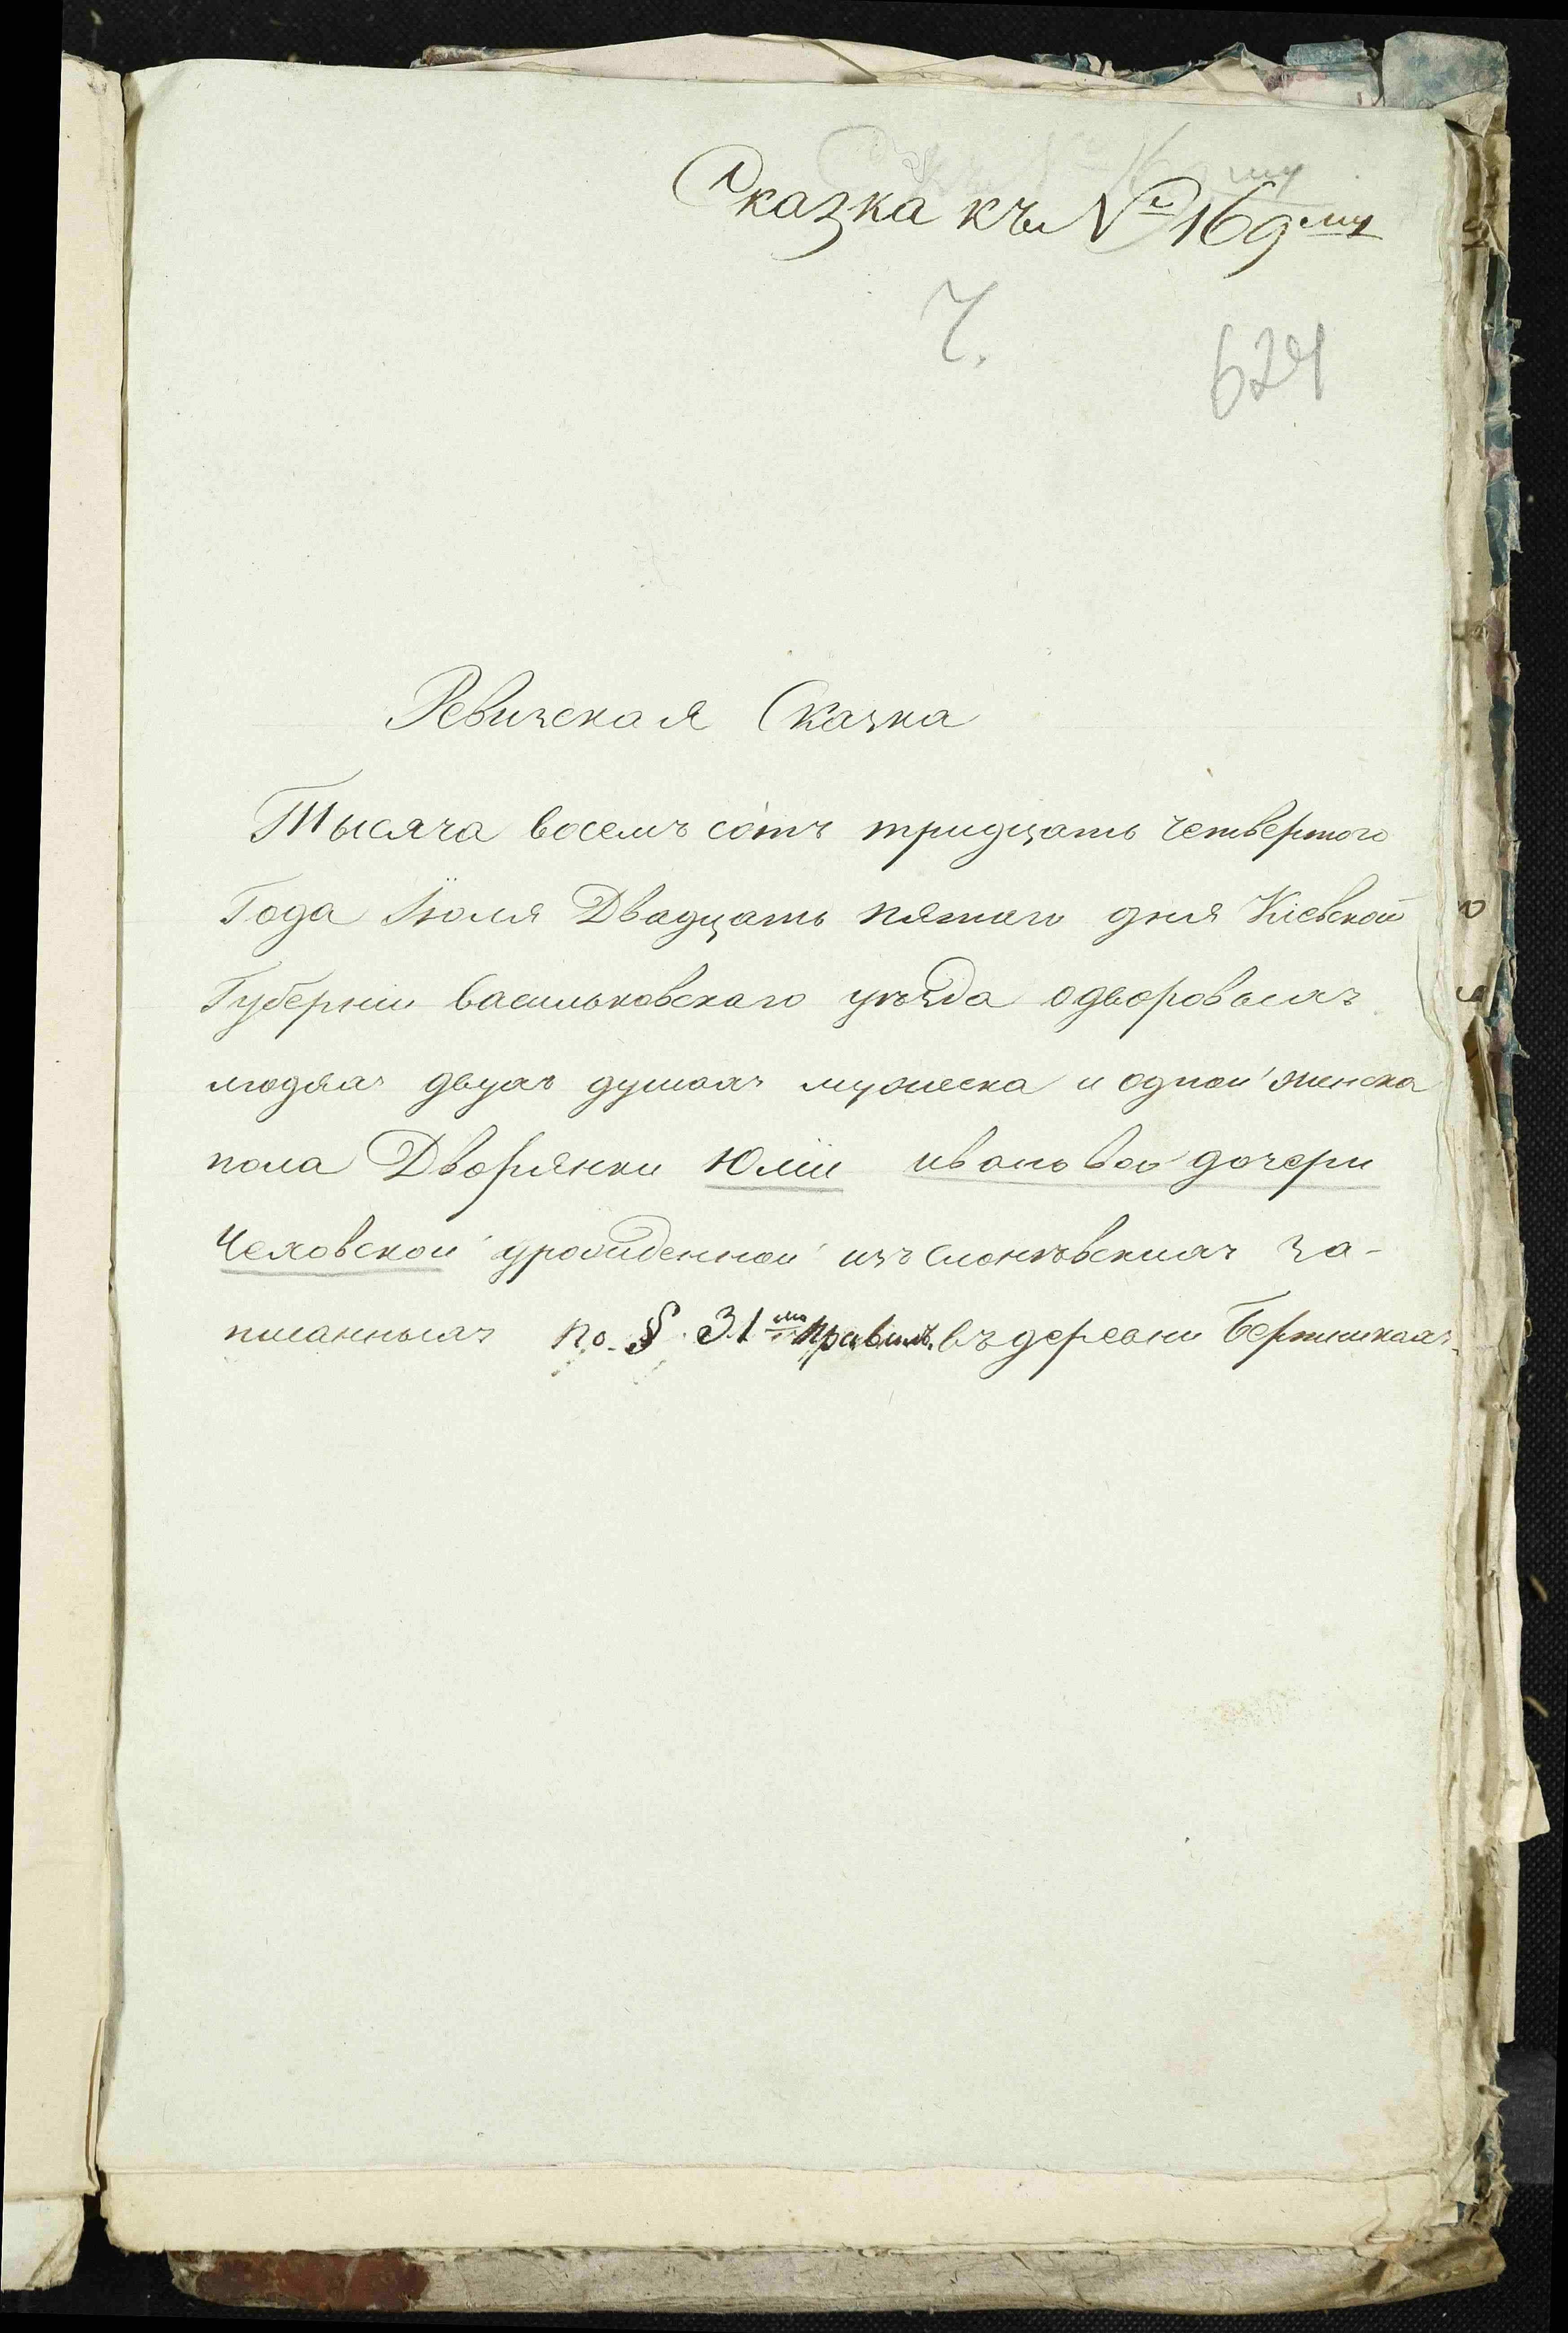 Сказка къ № 169му
Ч.
624
Ревизская Сказка
Тысяча восемъ сотъ тридцать четвертого
Года Іюля Двадцать пятаго дня Кіевской
Губерніи Васильковскаго уѣзда о дворовыхъ
людяхъ двухъ душахъ мужеска и одной женска
пола Дворянки Юліи Ивановой дочери
Чеховской урожденной изъ за-
писанныхъ по § 31му правилъ въ деревни